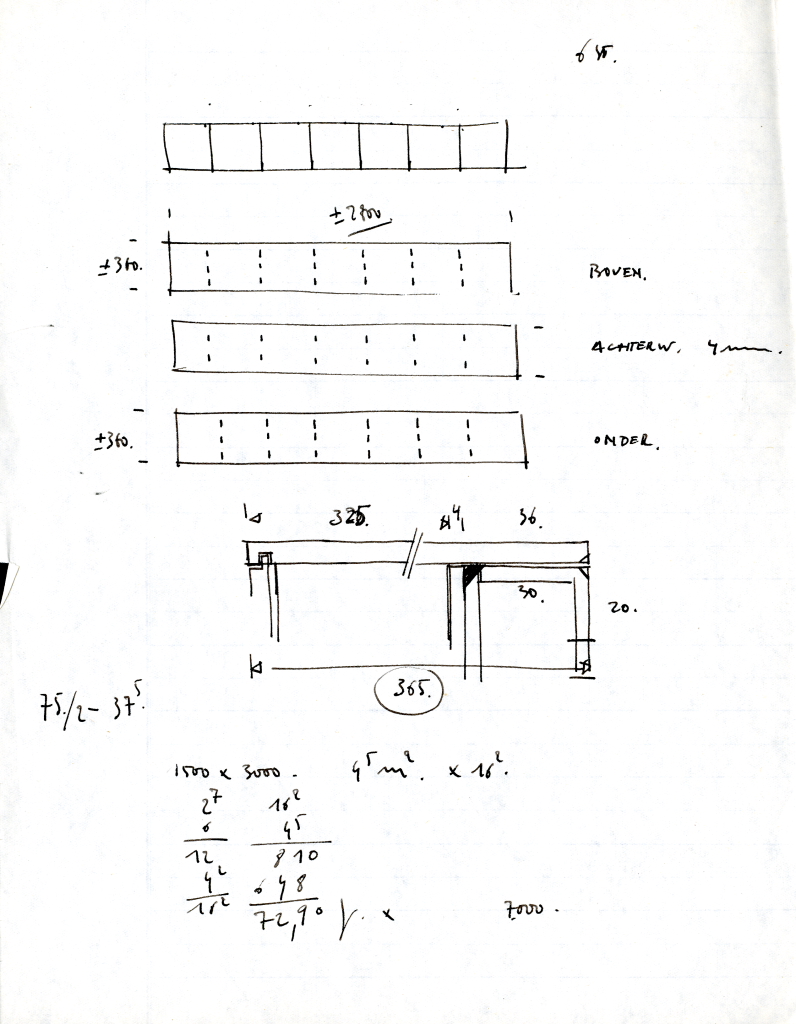 ±2800
±360. BOVEN.
ACHTERW. 4mm.
±360. ONDER.
325. 4 36.
30.
20.
365.
75/2 - 37⁵
1500 x 3000. 4⁵ m². x 16².
2⁷ 16²
6 4⁵
12 810
4² 648
16² 72,90 f. x 7000.